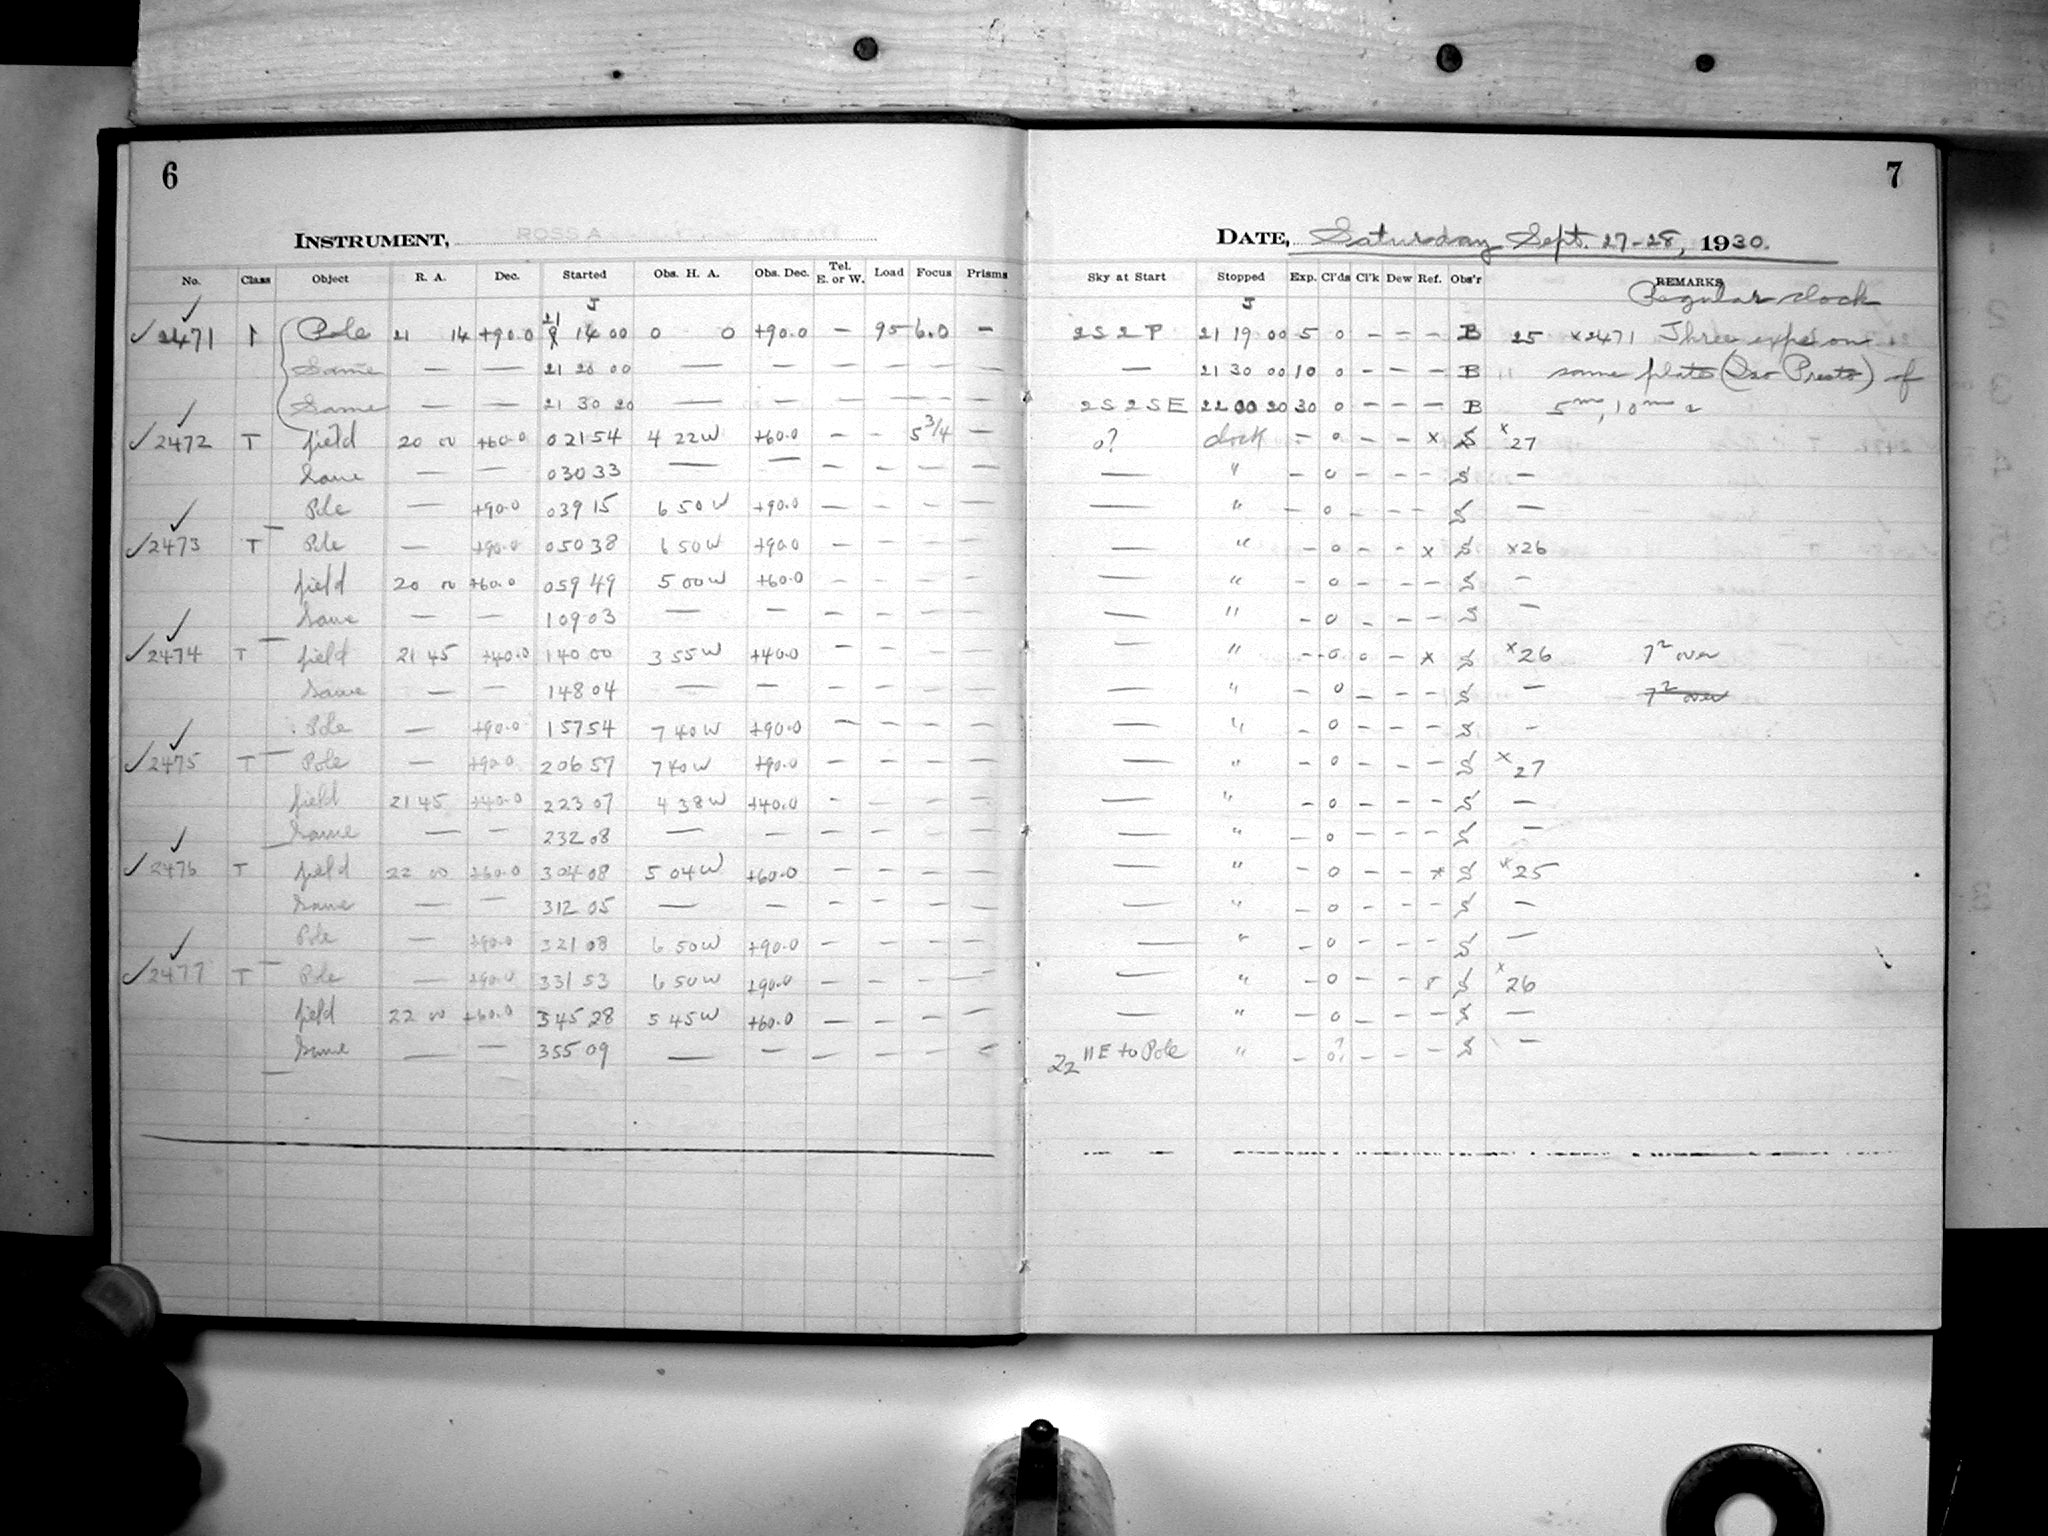 6
INSTRUMENT, ROSS A
No. Class Object R. A. Dec. Started Obs. H. A. Obs. Dec. Tel. E. or W. Load Focus Prisms
J
✓2471 1 Pole 21 14 +90.0 21 14 00 0 0 +90.0 — 95 6.0 —
Same — — 21 20 00 — — — — — —
Same — — 21 30 20 — — — — — —
✓2472 T field 20 00 +60.0 0 21 54 4 22 W +60.0 — — 5 3/4 —
Same — — 0 30 33 — — — — — —
Pole — +90.0 0 39 15 6 50 W +90.0 — — — —
✓2473 T Pole — +90.0 0 50 38 6 50 W +90.0 — — — —
field 20 00 +60.0 0 59 49 5 00 W +60.0 — — — —
Same — — 1 09 03 — — — — — —
✓2474 T field 21 45 +40.0 1 40 00 3 55 W +40.0 — — — —
Same — — 1 48 04 — — — — — —
Pole — +90.0 1 57 54 7 40 W +90.0 — — — —
✓2475 T Pole — +90.0 2 06 57 7 40 W +90.0 — — — —
field 21 45 +40.0 2 23 07 4 38 W +40.0 — — — —
Same — — 2 32 08 — — — — — —
✓2476 T field 22 00 +60.0 3 04 08 5 04 W +60.0 — — — —
Same — — 3 12 05 — — — — — —
Pole — +90.0 3 21 08 6 50 W +90.0 — — — —
✓2477 T Pole — +90.0 3 31 53 6 50 W +90.0 — — — —
field 22 00 +60.0 3 45 28 5 45 W +60.0 — — — —
Same — — 3 55 09 — — — — — —
7
DATE, Saturday Sept. 27-28, 1930.
Sky at Start Stopped Exp. Cl'ds Cl'k Dew Ref. Obs'r REMARKS
J Regular clock
2 S 2 P 21 19 00 5 0 — — — B 25 x2471 Three exps on
— 21 30 00 10 0 — — — B " same plate (Iso Presto) of
2 S 2 S E 22 00 20 30 0 — — — B 5m, 10m
0? clock — 0 — — x S x27
— " — 0 — — — S —
— " — 0 — — — S —
— " — 0 — — x S x26
— " — 0 — — — S —
— " — 0 — — — S —
— " — 0 0 — x S x26 7² over
— " — 0 — — — S — 7² over
— " — 0 — — — S —
— " — 0 — — — S x27
— " — 0 — — — S —
— " — 0 — — — S —
— " — 0 — — x S x25
— " — 0 — — — S —
— " — 0 — — — S —
— " — 0 — — S x26
— " — 0 — — — S —
22 11 E to Pole " — 0? — — — S —